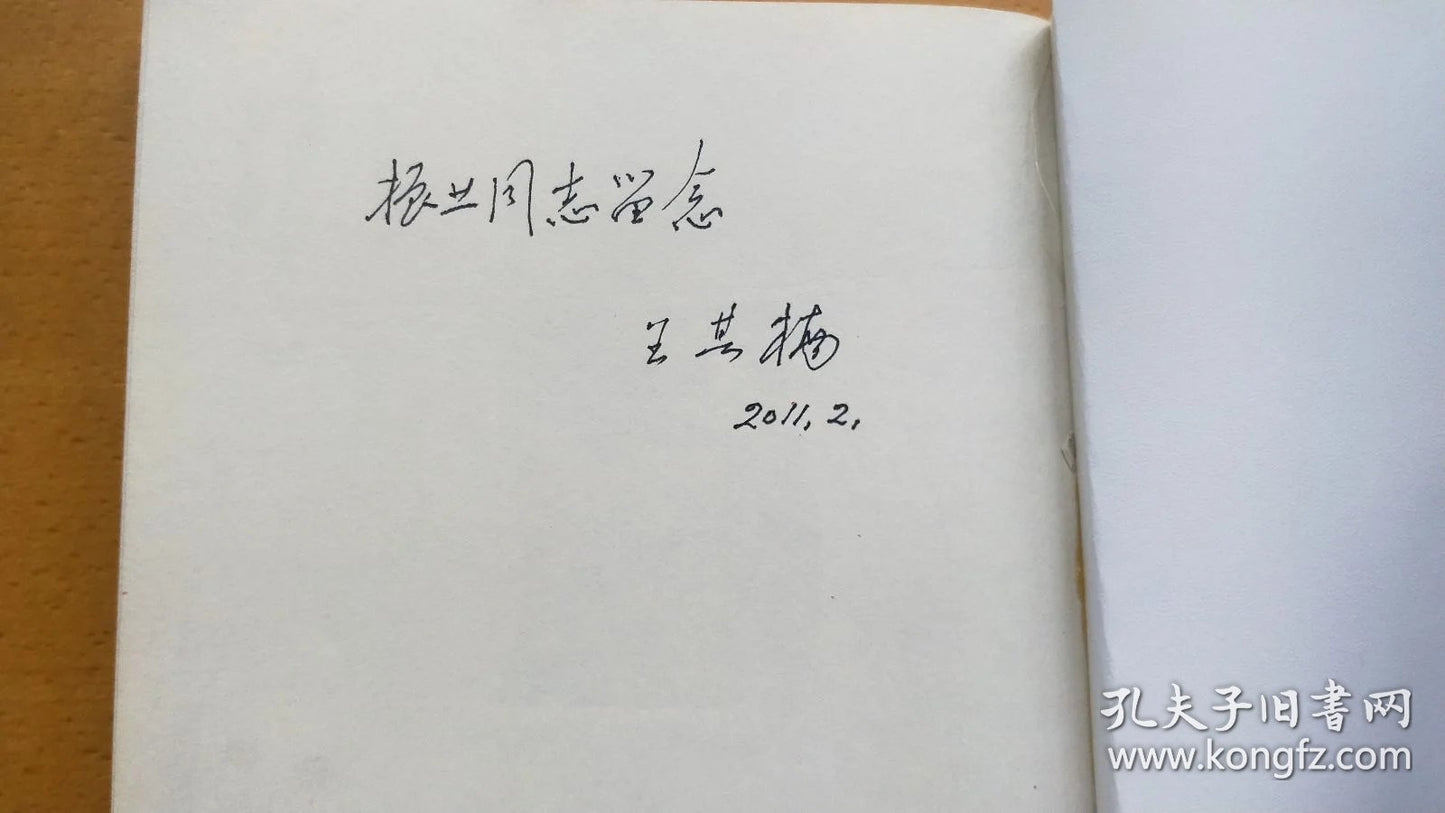 振业同志留念
王其楠
2011.2.
孔夫子旧書网
www.kongfz.com